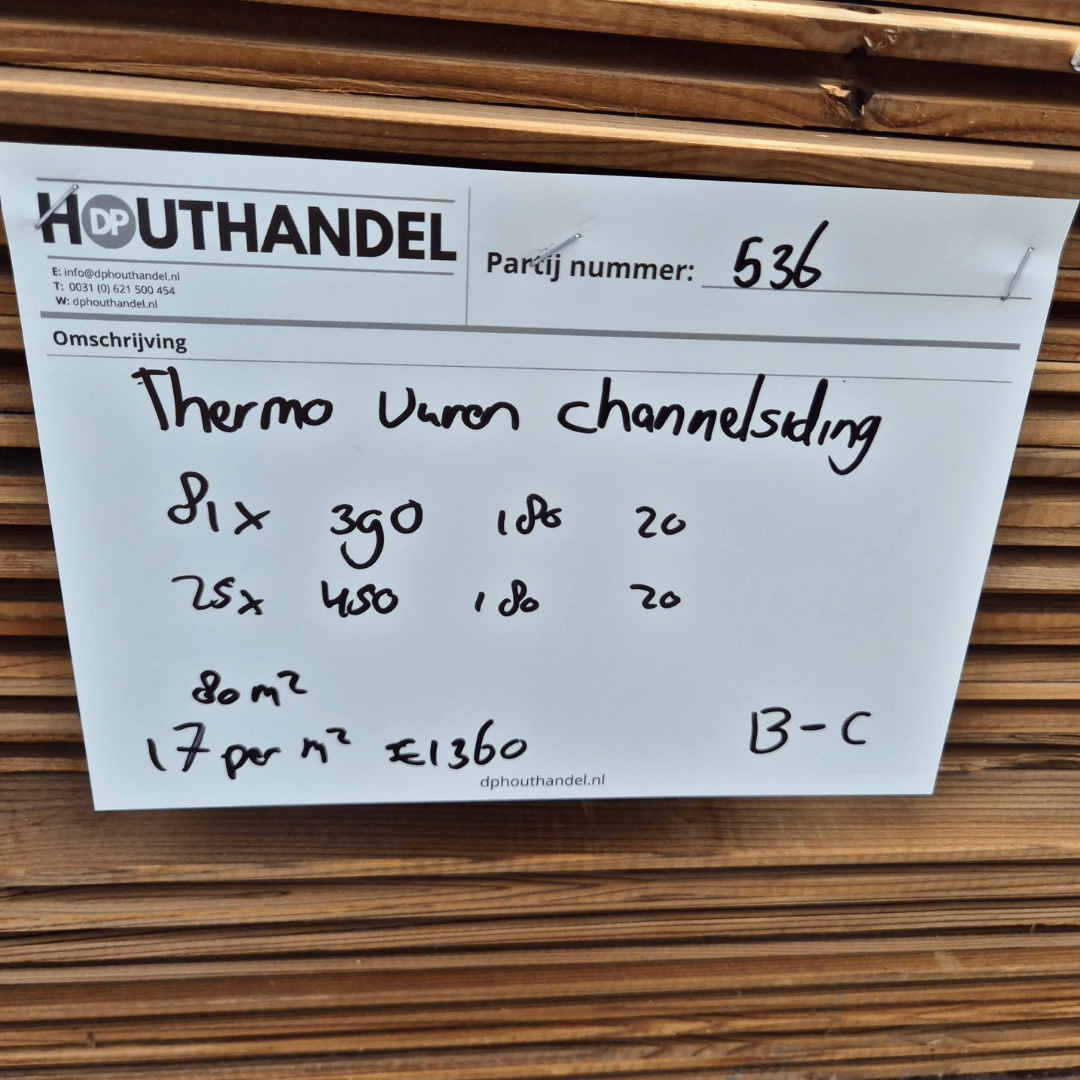 HOUTHANDEL
DP
E: info@dphouthandel.nl
T: 0031 (0) 621 500 454
W: dphouthandel.nl
Partij nummer: 536
Omschrijving
Thermo Vuren channelsiding
81x 390 180 20
25x 450 180 20
80 m²
17 per m² €1360
B-C
dphouthandel.nl